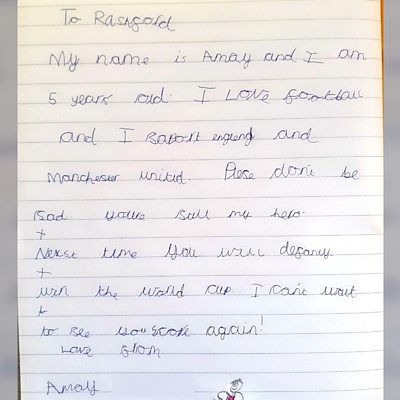 To Rashford
My name is Amay and I am
5 years old. I Love football
and I saport england and
Manchester united. Plese don't be
sad you're still my hero.
+
Nexst time you will defanly
+
win the world cup. I can't wait
+
to see you score again!
Love from
Amay